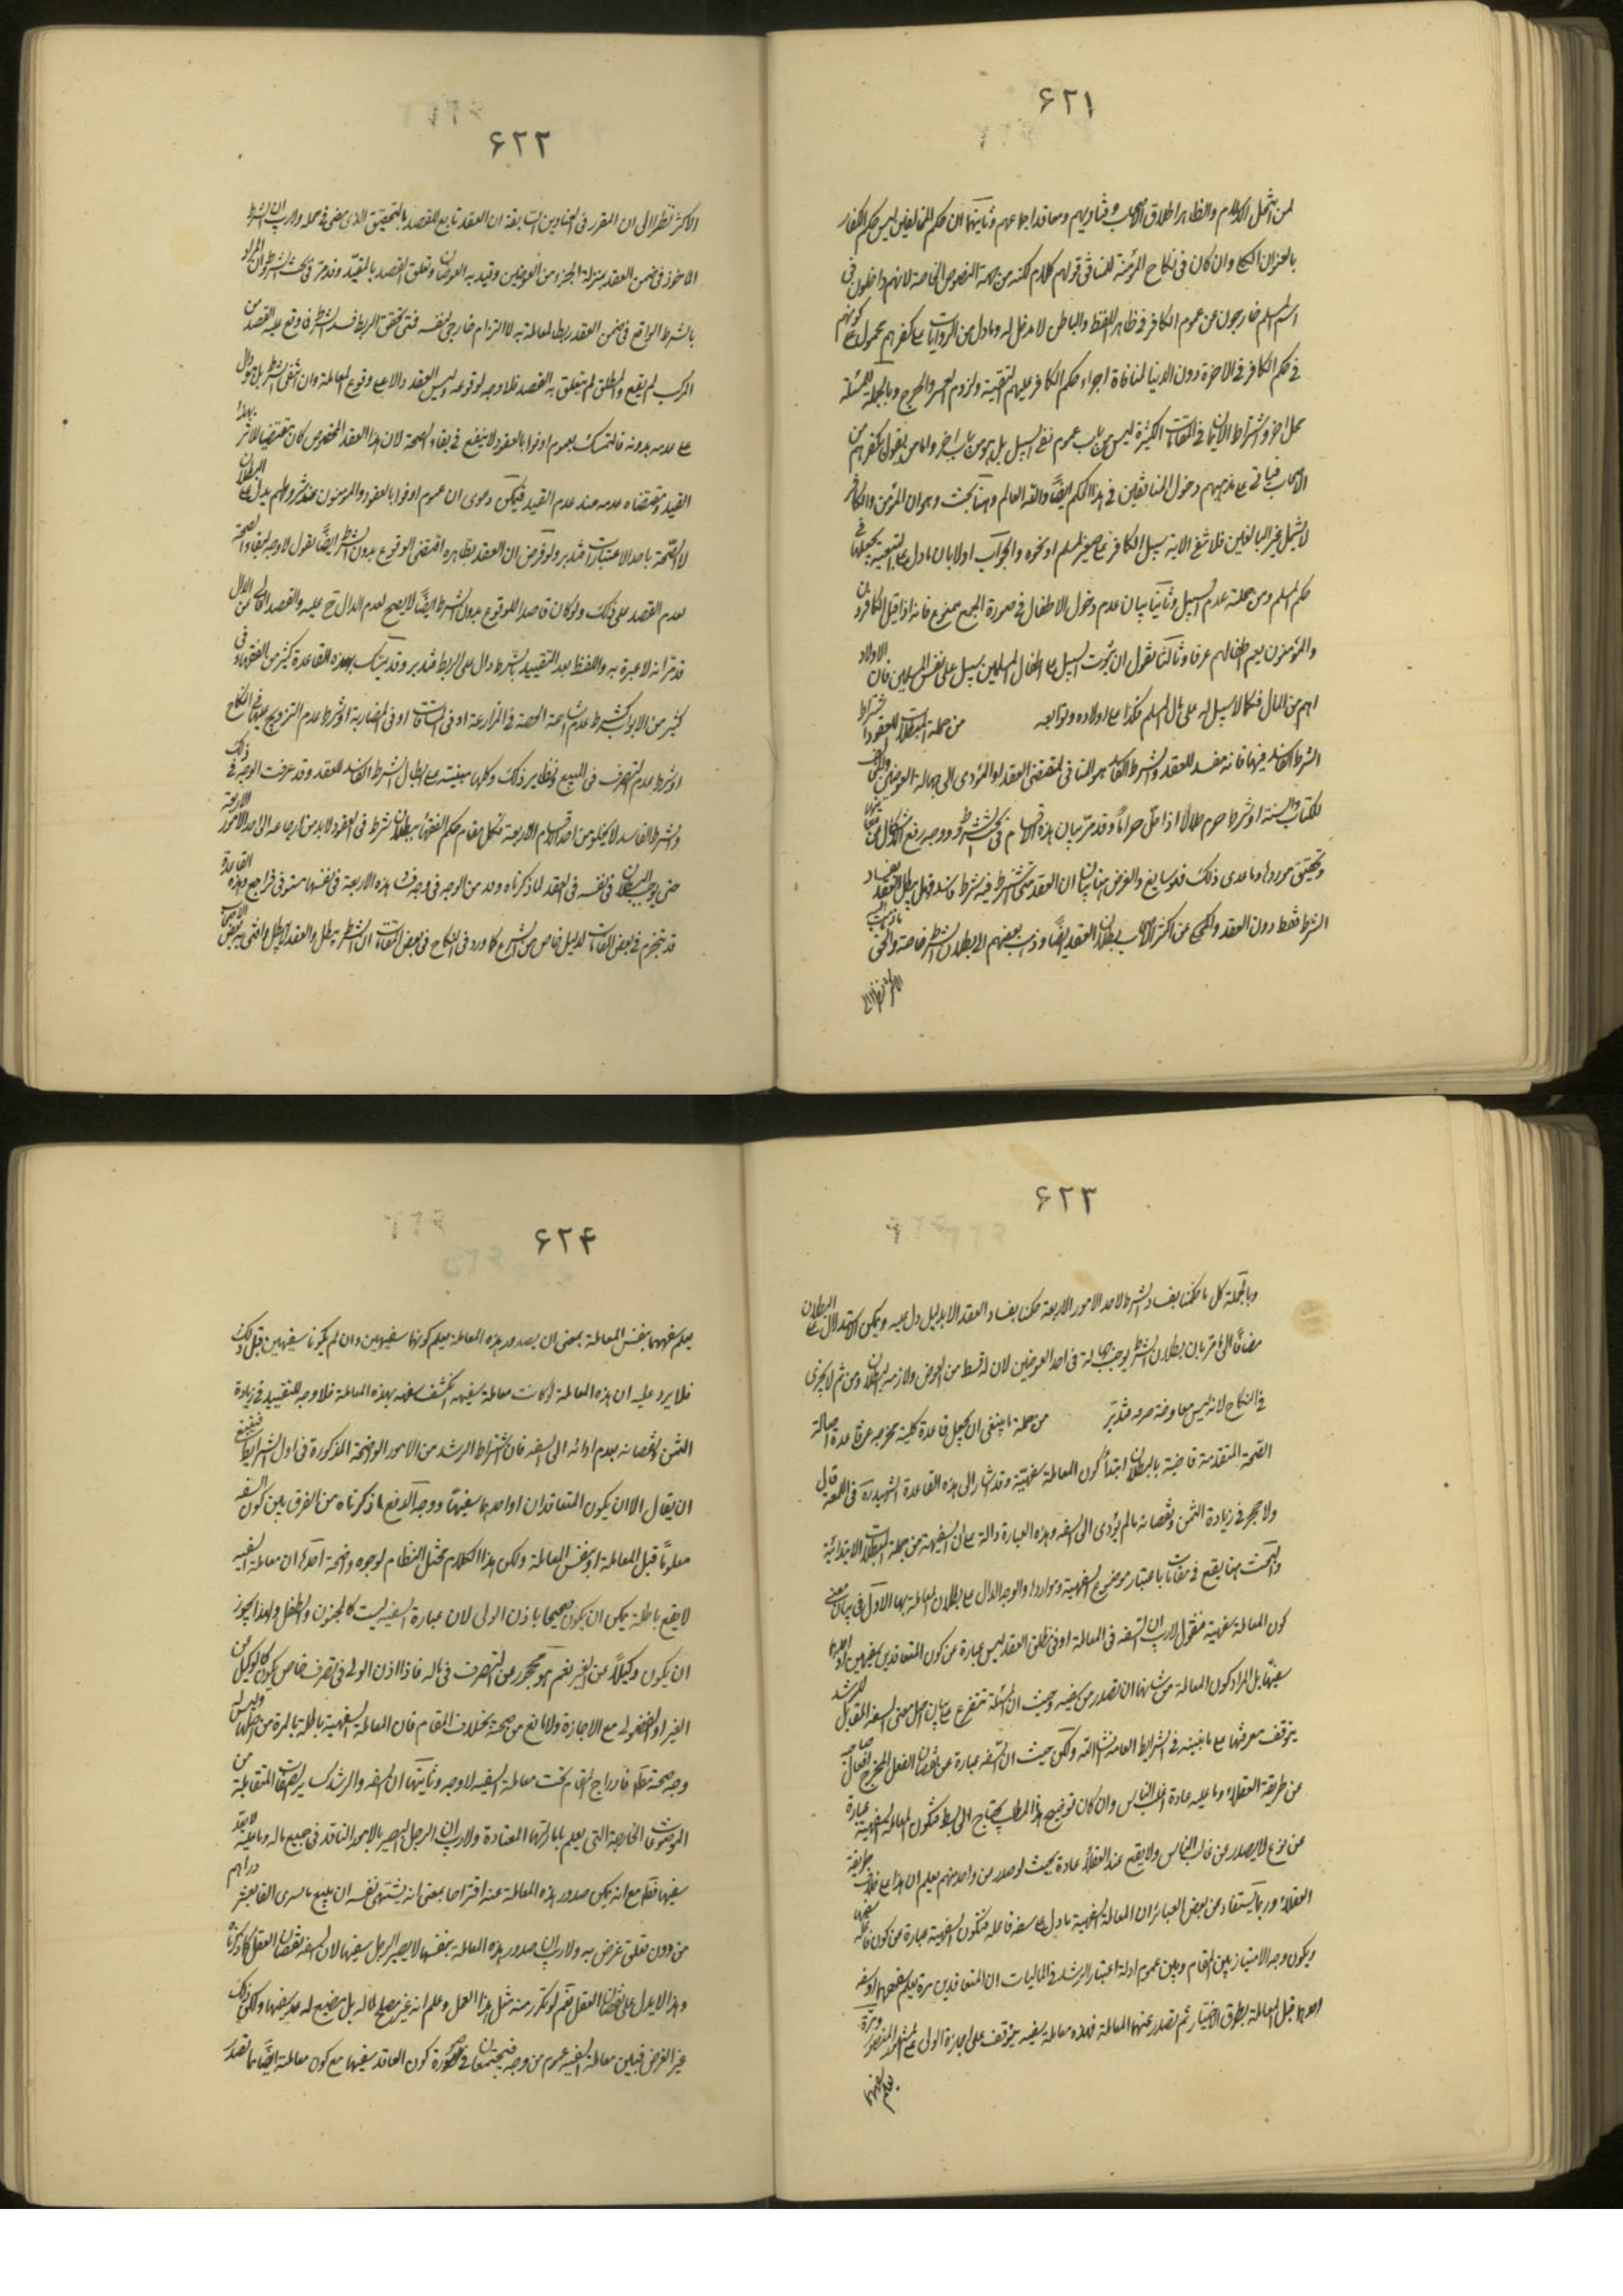 ٦٢١
لمن انتحل الاسلام والظاهر اطلاق الاصحاب وفتاويهم ومعاقد اجماعهم وثانيهما ان حكم المخالفين ليس حكم الكفار
بالعنوان الكلي وان كان في نكاح المؤمنة للمنافي قولهم كلام لكنه من جهة النصوص الخاصة لانهم داخلون في
اسم المسلم خارجون عن عموم الكافر في ظاهر اللفظ والباطن لا مدخل له وما دل من الروايات على كفرهم محمول على كونهم
في حكم الكافر في الاخرة دون الدنيا لمنافاة اجراء حكم الكافر عليهم التقية ولزوم العسر والحرج وبالجملة للمسئلة
محل اخر واشتراط الايمان في المقامات الكثيرة ليس من باب عموم نفي السبيل بل هو من باب اخر واما من يقول بكفرهم من
الاصحاب فياتي على مذهبهم دخول المخالفين في هذا الحكم ايضا والله العالم وهنا بحث وهو ان المؤمن والكافر
لا يشمل غير البالغين فلا تنفي الاية سبيل الكافر على صغير المسلم او نحوه والجواب اولا بان ما دل على التبعية يجعلها في
حكم المسلم ومن جملته عدم السبيل وثانيا بان عدم دخول الاطفال في صورة الجمع ممنوع فانه اذا قيل الكافرون
والمؤمنون يعم اطفالهم عرفا وثالثا نقول ان ثبوت السبيل على اطفال المسلمين سبيل على نفس المسلمين فان الاولاد
اهم من المال فكما لا سبيل له على مال المسلم فكذا على اولاده وتوابعه من جملة المبطلات للعقود اشتراط
الشرط الفاسد فيها فانه مفسد للعقد والشرط الفاسد هو المنافي لمقتضى العقد او المؤدي الى جهالة العوضين والمخالف
للكتاب والسنة او شرط حرم حلالا او احل حراما وقد مر بيان هذه الاقسام في بحث الشروط ووجه رفع الاشكال من بينها
وتحقيق مواردها وما عدى ذلك فهو سايغ والغرض هنا بيان ان العقد متى اشترط فيه شرط فاسد فهل يبطل العقد بفساد
الشرط فقط دون العقد والمحكي عن اكثر الاصحاب بطلان العقد ايضا وذهب بعضهم الى بطلان الشرط خاصة والحق ما ذهب اليه
الاكثر نظرا الى
٦٢٢
الاكثر نظرا الى ان المقرر في العناوين السابقة ان العقد تابع للقصد بالتحقيق الذي مضى في محله ولا ريب ان الشرط
الماخوذ في ضمن العقد بمنزلة الجزء من العوضين وقيد به العوضان وتعلق القصد بالمقيد وقد مر في بحث الشروط ان المراد
بالشرط الواقع في ضمن العقد ربط المعاملة به لا التزام خارجي لنفسه فمتى تحقق الربط فسد الشرط فما وقع عليه القصد من
المركب لم يقع والمطلق لم يتعلق به القصد فلا وجه لوقوعه وليس العقد دالا على وقوع المعاملة وان انتفى الشرط بل هو دال
على عدمه بدونه فالتمسك بعموم اوفوا بالعقود لا ينفع في بقاء الصحة لان هذا العقد المخصوص كان مقتضيا لاثر بهذا
القيد ومقتضاه عدمه عند عدم القيد فيمكن دعوى ان عموم اوفوا بالعقود والمؤمنون عند شروطهم يدل على البطلان
لا الصحة باحد الاعتبارات فتدبر ولو فرض ان العقد بظاهره اقتضى الوقوع بدون الشرط ايضا نقول لا وجه لبقاء الصحة
لعدم القصد على ذلك ولو كان قاصدا للوقوع بدون الشرط ايضا لا يصح لعدم الدال ح عليه والقصد الخالي من الدال
قد مر انه لا عبرة به واللفظ بعد التقييد بالشرط دال على الربط فتدبر وقد تمسك بهذه القاعدة كثير من الفقهاء في
كثير من الابواب كشرط عدم مشاعة الحصة في المزارعة او في المساقات او في المضاربة او شرط عدم التزويج عليها في النكاح
او شرط عدم التصرف في المبيع ونظاير ذلك وكلها مبنية على ابطال الشرط الفاسد للعقد وقد عرفت الوجه في ذلك
والشرط الفاسد لا يخلو من احد الاقسام الاربعة فكل مقام حكم الفقهاء ببطلان شرط في العقود لابد من ارجاعه الى احد الامور الاربعة
حتى يوجب البطلان في نفسه في العقد لما ذكرناه وقد مر الوجه في وجه فساد هذه الاربعة في نفسها مستوفى فراجع وهذه القاعدة
قد تنخرم في بعض المقامات لدليل خاص من الشرع كما ورد في النكاح في بعض المقامات ان الشرط يبطل والعقد لا يبطل وافتى به بعض الاصحاب
٦٢٣
وبالجملة كل ما حكمنا بفساد الشرط لاحد الامور الاربعة حكمنا بفساد العقد الا بدليل دل عليه ويمكن الاستدلال على البطلان
مضافا الى ما مر بان بطلان الشرط يوجب جهالة في احد العوضين لان له قسط من العوض ولازمه البطلان ومن ثم لا يجري
في النكاح لانه ليس معاوضة صرفة فتدبر من جملة ما ينبغي ان يجعل قاعدة كلية مخرجة عن قاعدة اصالة
الصحة المتقدمة قاضية بالبطلان ابتداء كون المعاملة سفهية وقد اشار الى هذه القاعدة الشهيد ره في اللمعة قال
ولا حجر في زيادة الثمن ونقصانه ما لم يؤدى الى السفه وهذه العبارة دالة على ان السفهية من جملة المبطلات الابتدائية
والبحث هنا يقع في مقامات باعتبار موضوع السفهية ومواردها والوجه الدال على بطلان المعاملة بها الاول في بيان معنى
كون المعاملة سفهية فنقول لا ريب ان السفه في المعاملة او في مطلق العقد ليس عبارة عن كون المتعاقدين سفيهين او احدهما
سفيها بل المراد كون المعاملة من شانها ان تصدر من سفيه وحيث ان المسئلة تتفرع على بيان اصل معنى السفه المقابل للرشد
يتوقف معرفتها على ما نبينه في الشرايط العامة انشاء الله ولكن حيث ان السفه عبارة عن نقصان الفعل المخرج افعال صاحبه
عن طريقة العقلاء وما عليه عادة اغلب الناس وان كان توضيح هذا المطلب يحتاج الى بسط فتكون المعاملة السفهية عبارة
عن نوع لا يصدر من غالب الناس ولا يقع عند العقلاء عادة بحيث لو صدر من واحد منهم يعلم ان هذا على خلاف طريقة
العقلاء وربما يستفاد من بعض العبائر ان المعاملة السفهية ما دل على سفه فاعله فتكون السفهية عبارة من كون فاعله سفيها
ويكون وجه الامتياز بين المقام وبين عموم ادلة اعتبار الرشد في الماليات ان المتعاقدين مرة يعلم سفههما او سفه
احدهما قبل المعاملة بطرق الاختبار ثم تصدر عنهما المعاملة فهذه معاملة سفيه يتوقف على اجازة الولي على المشهور المنصور ومرة
يعلم سفههما
٦٢٤
يعلم سفههما بنفس المعاملة بمعنى ان بصدور هذه المعاملة يعلم كونهما سفيهين وان لم يكونا سفيهين قبل ذلك
فلا يرد عليه ان هذه المعاملة لو كانت معاملة سفيه انكشف سفهه بهذه المعاملة فلا وجه للتقييد في زيادة
الثمن ونقصانه بعدم ادائه الى السفه فان اشتراط الرشد من الامور الواضحة المذكورة في اول الشرايط فينبغي
ان يقال الا ان يكون المتعاقدان او احدهما سفيها ووجه الدفع ما ذكرناه من الفرق بين كون السفه
معلوما قبل المعاملة او بنفس المعاملة ولكن هذا الكلام مختل النظام لوجوه واضحة احدها ان معاملة السفيه
لا يقع باطلة يمكن ان يكون صحيحا باذن الولي لان عبارة السفيه ليست كالمجنون والطفل ولهذا يجوز
ان يكون وكيلا من الغير نعم هو محجور عن التصرف في ماله فاذا اذن الولي في تصرف خاص يكون كالوكيل من
الغير او الفضولي مع الاجازة ولا مانع من صحته بخلاف المقام فان المعاملة السفهية باطلة بالمرة من اصلها وليس له
وجه صحة فادراج المقام تحت معاملة السفيه لا وجه وثانيها ان السفه والرشد كساير الصفات المتقابلة من
الموضوعات الخارجية التي يعلم باماراتها المعتادة ولا ريب ان الرجل البصير بالامور الناقد في جميع ماله وما عليه لا يعد
سفيها قطعا مع انه يمكن صدور هذه المعاملة عنه اقتراحا بمعنى انه يشتهي نفسه ان يبيع ما يسوى الفا بعشر دراهم
من دون تعلق غرض به ولا ريب ان صدور هذه المعاملة بنفسها لا يصير الرجل سفيها لان السفه نقصان العقل كما ذكرنا
وهذا لا يدل على نقصان العقل نعم لو تكرر منه مثل هذا العمل وعلم انه غير مصلح لماله بل مضيع له يعد سفيها ولكن ذلك
غير الغرض فبين معاملة السفيه عموم من وجه فيجتمعان في صورة كون العاقد سفيها مع كون معاملته ايضا مما تصدر